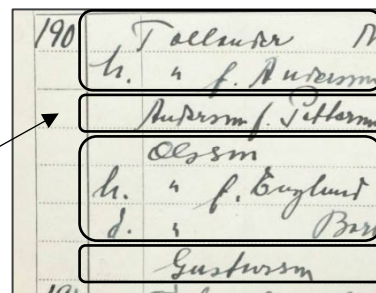 190 Tollander
h. " f. Andersson
Andersson f. Petterson
Olsson
h. " f. Englund
d. "
Gustavsson